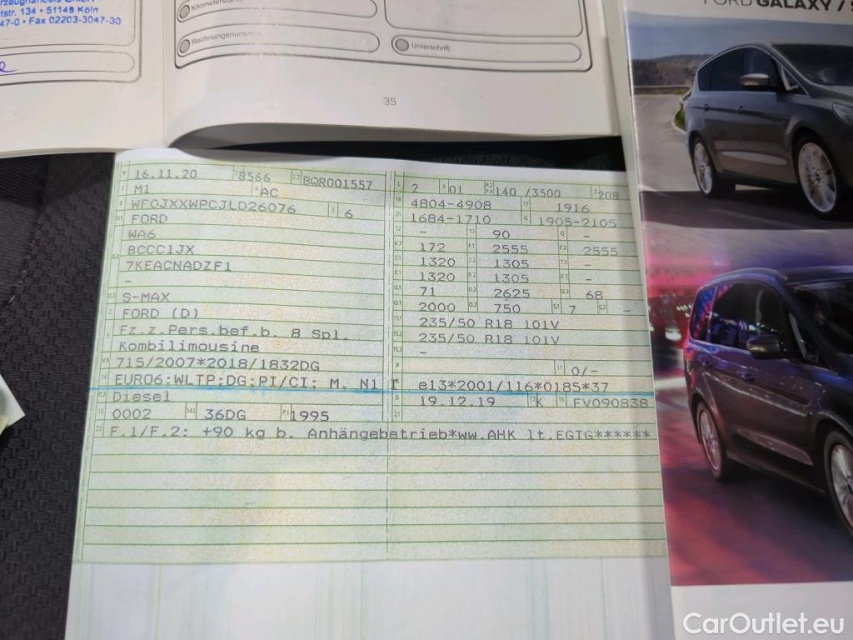 str. 134 • 51149 Köln
47-0 • Fax 02203-3047-30
Rechnungsnummer
Unterschrift
35
FORD GALAXY /
16.11.20 8566 BOR001557
M1 AC
WF0JXXWPCJLD26076 6
FORD
WA6
BCCC1JX
7KEACNADZF1
-
S-MAX
FORD (D)
Fz.z.Pers.bef.b. 8 Spl.
Kombilimousine
715/2007*2018/1832DG
EURO6;WLTP;DG;PI/CI; M, N1 I
Diesel
0002 36DG 1995
F.1/F.2: +90 kg b. Anhängebetrieb*ww.AHK lt.EGTG******
2 01 140 /3500 208
4804-4908 1916
1684-1710 1905-2105
- 90 -
172 2555 2555
1320 1305 -
1320 1305 -
71 2625 68
2000 750 7 -
235/50 R18 101V
235/50 R18 101V
-
0/-
e13*2001/116*0185*37
19.12.19 K FV090838
CarOutlet.eu